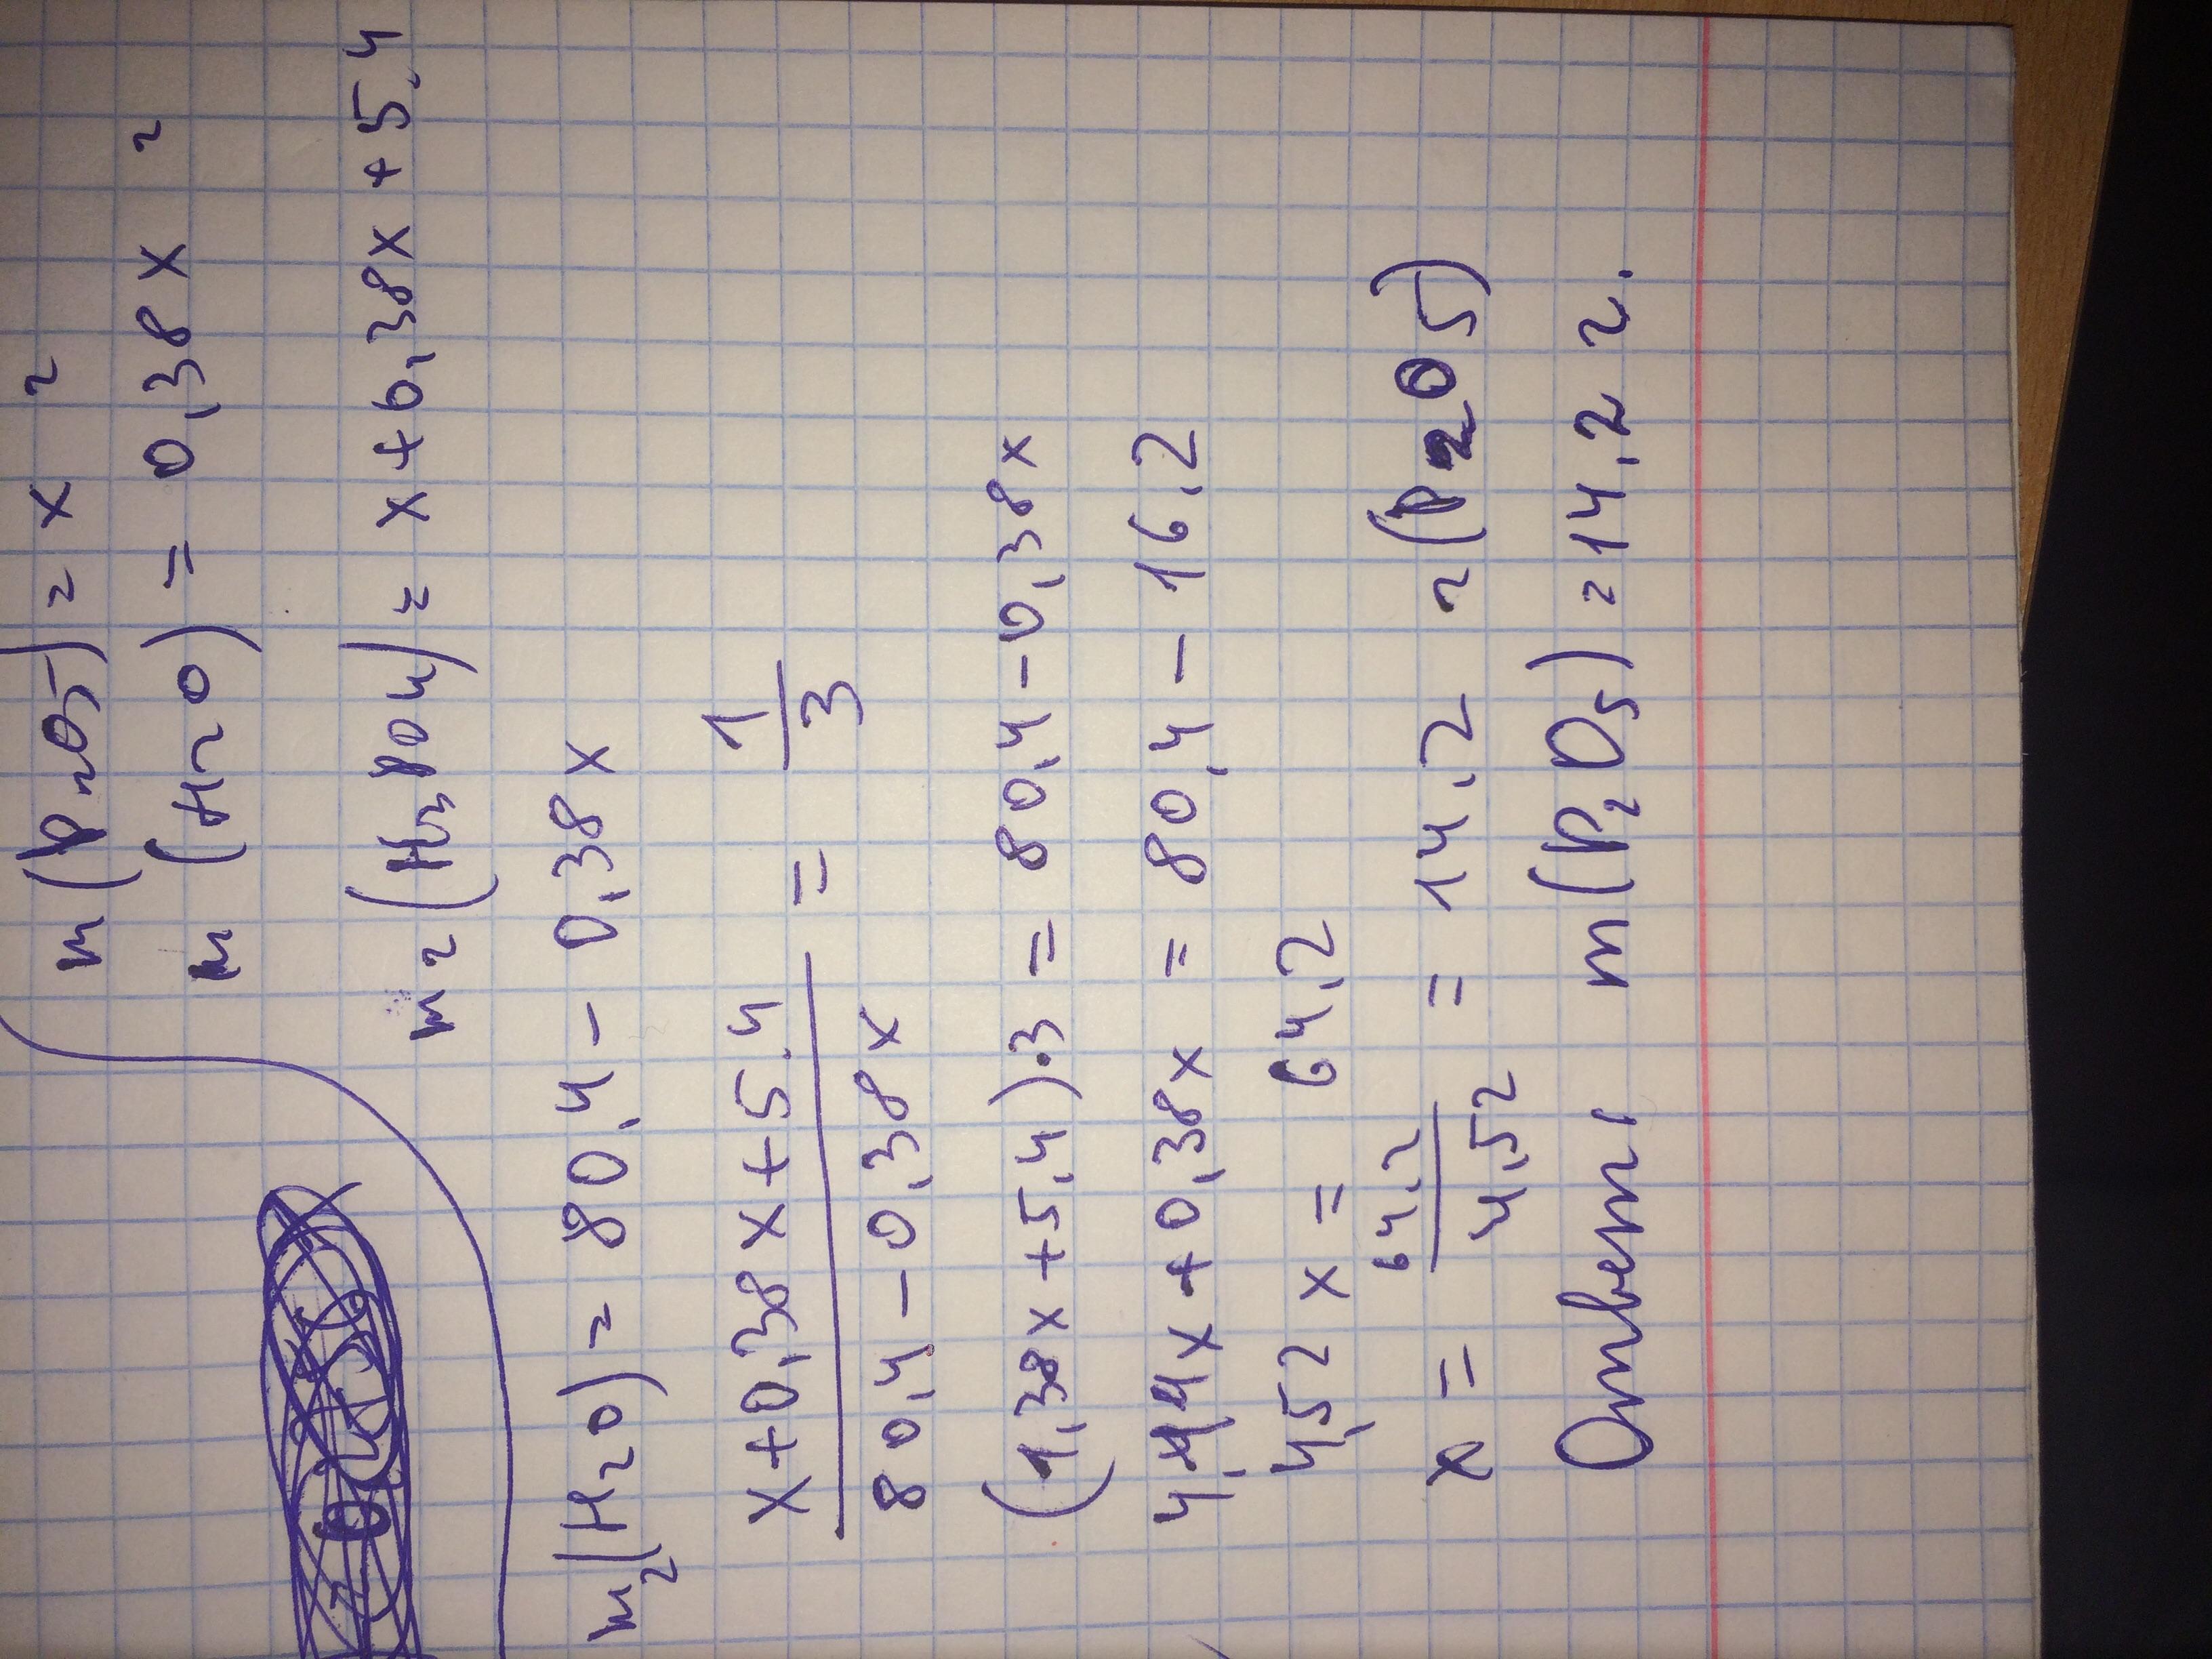 m(P₂O₅) = x г
m(H₂O) = 0,38x г
m₂(H₃PO₄) = x+0,38x+5,4
m₂(H₂O) = 80,4 - 0,38x
x+0,38x+5,4 / 80,4-0,38x = 1/3
(1,38x+5,4)·3 = 80,4-0,38x
4,14x+0,38x = 80,4-16,2
4,52x = 64,2
x = 64,2/4,52 = 14,2 г (P2O5)
Ответ, m(P₂O₅) = 14,2 г.